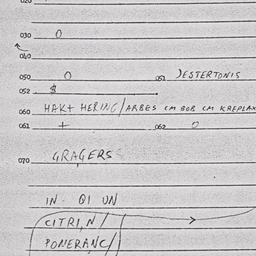 020
030 0
040
050 0 051 JESTERTONIS
052 $
060 HAK+ HERING/ARBES CM BOB CM KREPLAX
061 + 062 0
070 GRAGERS
IN. QI UN
CITRIN/
PONERANC/